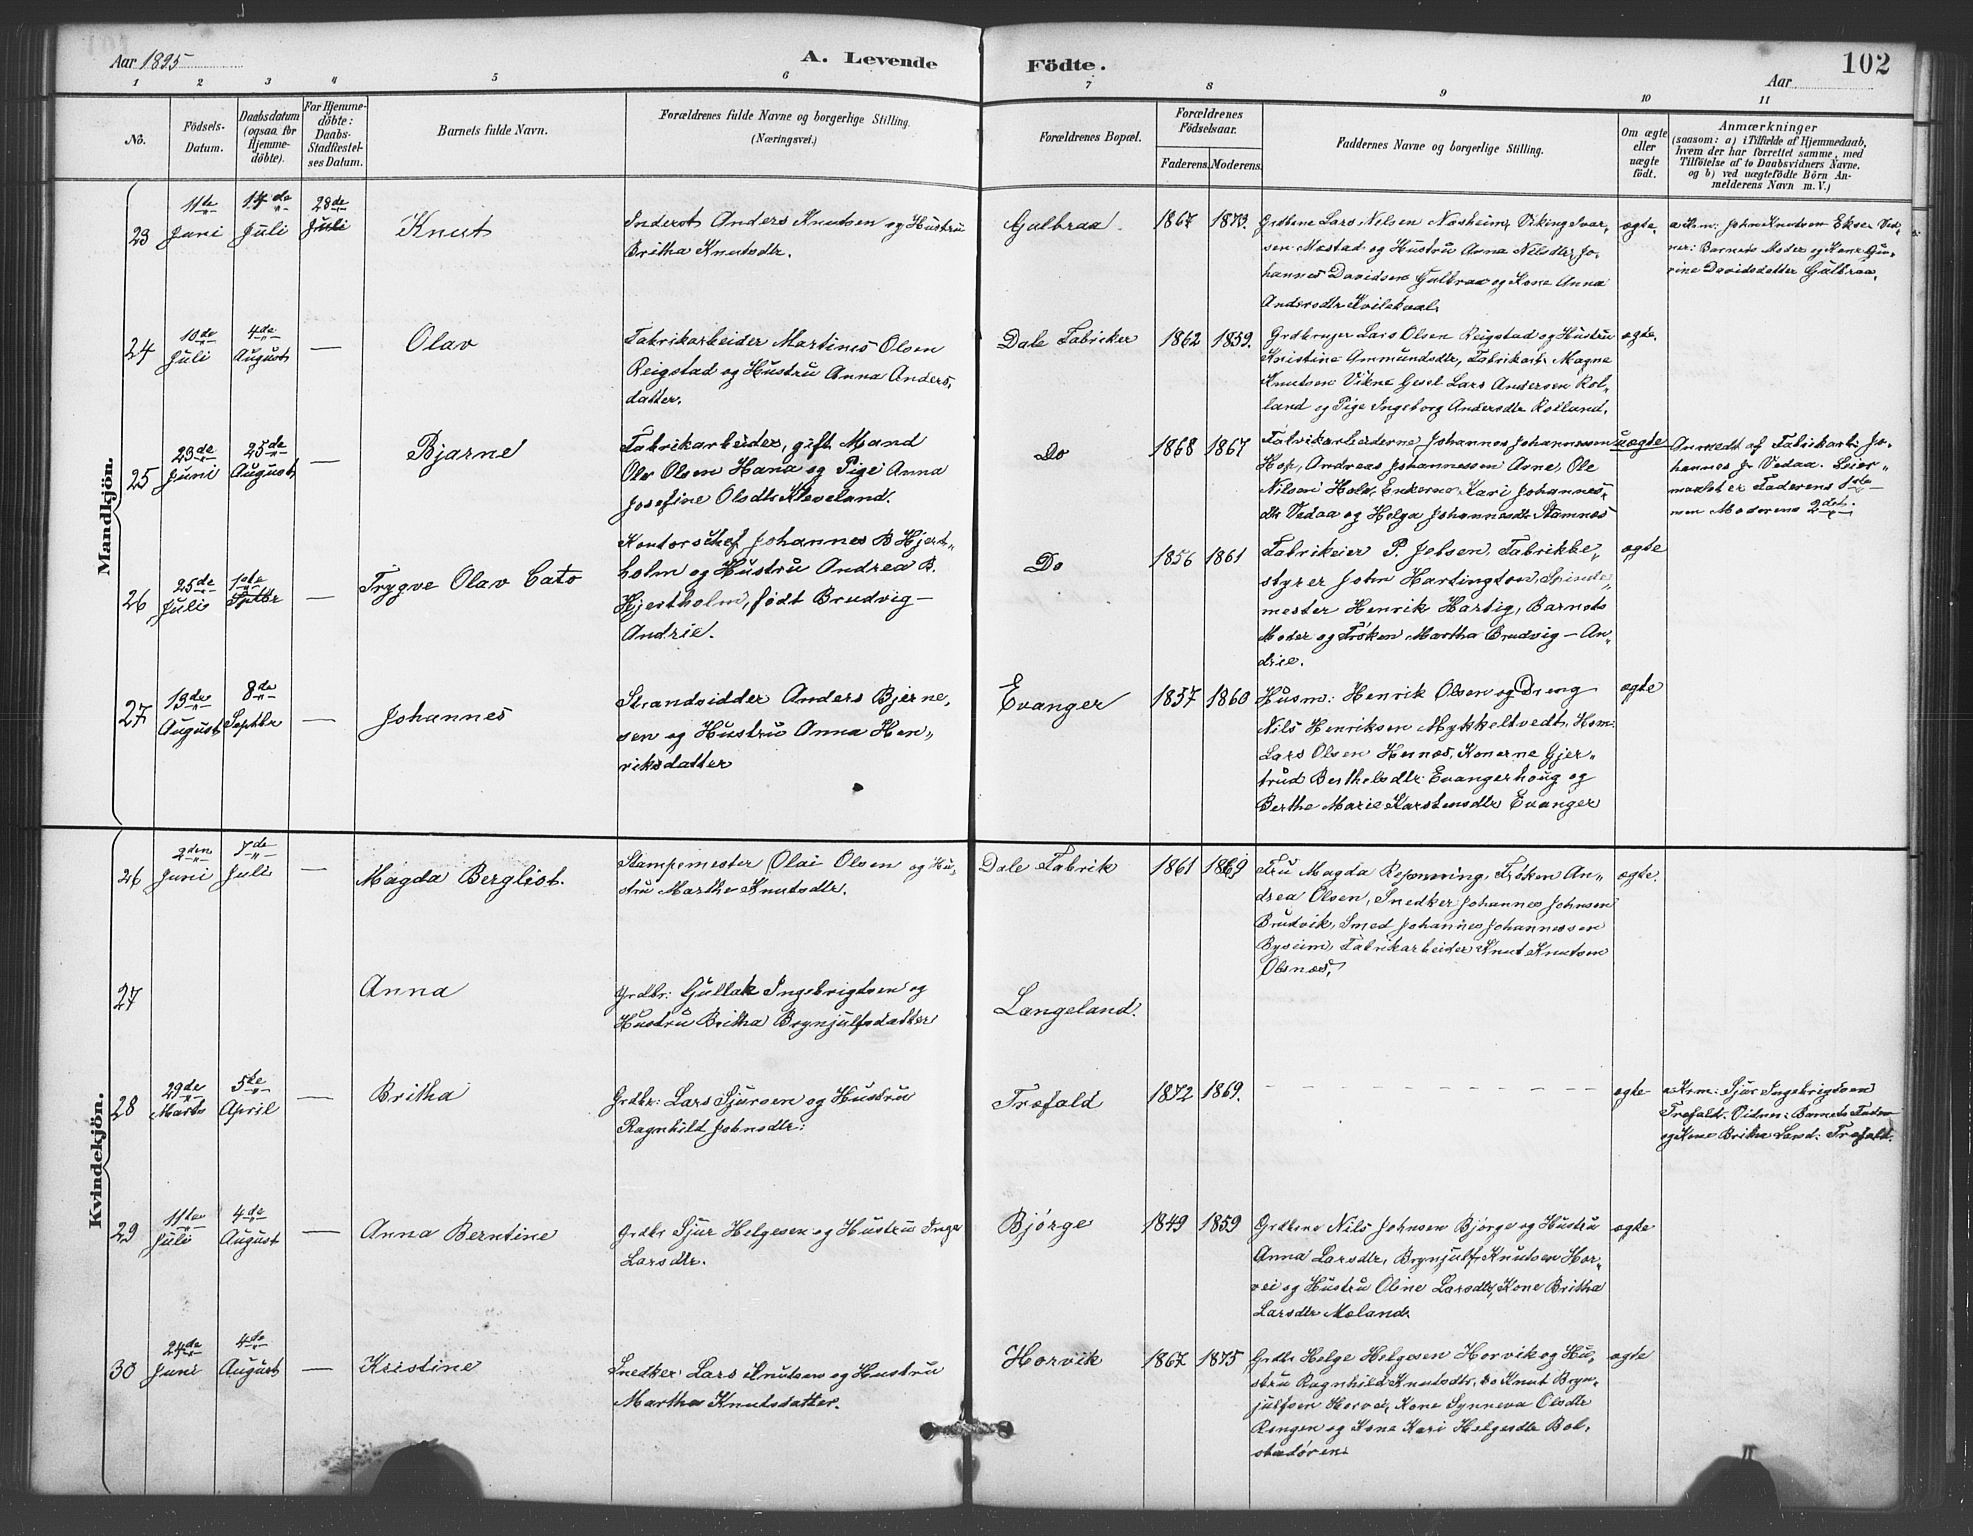 Aar 1895
A. Levende Födte.
Aar
102
1 2 3 4 5 6 7 8 9 10 11
No.
Födsels-
Datum.
Daabsdatum
(ogsaa for
Hjemme-
döbte).
For Hjemme-
döbte:
Daabs-
Stadfæstel-
ses Datum.
Barnets fulde Navn.
Forældrenes fulde Navne og borgerlige Stilling.
(Næringsvei.)
Forældrenes Bopæl.
Forældrenes
Födselsaar.
Faderens. Moderens.
Faddernes Navne og borgerlige Stilling.
Om ægte
eller
uægte
født.
Anmærkninger
(saasom: a) i Tilfælde af Hjemmedaab,
hvem der har forrettet samme, med
Tilföielse af to Daabsvidners Navne.
og b) ved uægtefödte Börn An-
melderens Navn m. V.)
Mandkjön.
23
11te
Juni
14de
Juli
28de
Juli
Knut
Inderst Anders Knutsen og Hustru
Britha Knutsdtr.
Gulbraa.
1867 1873.
Grdbrne Lars Nilsen Næsheim, Viking Ivar-
sen Mæstad og Hustru Anna Nilsdtr, Jo-
hannes Davidsen Gulbraa og Kone Anna
Andersdtr Kvilekval.
ægte.
a Krm: John Knutsen Ekse. Vid-
ner: Barnets Moder og Kone Gu-
rine Davidsdatter Gulbraa.
24
10de
Juli
4de
August
—
Olav
Fabrikarbeider Martines Olsen
Reigstad og Hustru Anna Anders,
datter.
Dale Fabriker
1862 1859.
Grdbruger Lars Olsen Reigstad og Hustru
Kristine Ammundsdtr, Fabrikarb. Magne
Knutsen Vikne Gesel Lars Andersen Rol-
land og Pige Ingeborg Andersdtr Rolland.
ægte.
25
23de
Juni
25de
August
—
Bjarne
Fabrikarbeider, gift Mand
Olv Olsen Hana og Pige Anna
Josefine Olsdtr Kleveland.
Do
1868 1867
Fabrikarbeiderne Johannes Johannessen
Hop, Andreas Johannessen Arne, Ole
Nilsen Hole, Enkerne Kari Johannes-
dtr Vedaa og Helga Johannesdtr Stamnes
uægte
Anmeldt af Fabrikarb. Jo-
hannes Jr Vedaa. Leier-
maalet er Faderens 1ste
men Moderens 2det.
26
25de
Juli
1ste
Septbr
—
Trygve Olav Cato
Kontorschef Johannes B Hjert-
holm og Hustru Andrea B.
Hjertholm, født Brudvig-
Andrie.
Do
1856 1861
Fabrikeier P. Jebsen, Fabrikbe-
styrer John Hartington, Spinde-
mester Henrik Hartig, Barnets
Moder og Frøken Martha Brudvig-An-
drie.
ægte
27
13de
August
8de
Septbr
—
Johannes
Strandsidder Anders Bjerne,
sen og Hustru Anna Hen-
riksdatter
Evanger
1857 1860
Husm: Henrik Olsen og Dreng
Nils Henriksen Mykkeltvedt, Hom:
Lars Olsen Hernes, Konerne Gjer-
trud Berthelsdtr Evangerhoug og
Berthe Marie Karstensdtr Evanger
ægte
Kvindekjön.
26
2den
Juni
7de
Juli
—
Magda Bergliot.
Stampemester Olai Olsen og Hu-
stru Marthe Knutsdtr.
Dale Fabrik
1861 1869
Fru Magda Rejonning, Frøken An-
drea Olsen, Snedker Johannes Johnsen
Brudvik, Smed Johannes Johannessen
Byseim, Fabrikarbeider Knut Knutsen
Olsnes.
ægte.
27
Anna
Grdbr: Gullak Ingebrigtsen og
Hustru Britha Brynjulfsdatter
Langeland.
28
29de
Marts
5te
April
—
Britha
Grdbr: Lars Sjursen og Hustru
Ragnhild Johnsdtr:
Trefald
1872 1869.
ægte
a Krm: Sjur Ingebrigtsen
Trefald. Vidne: Barnets Fader
og Kone Britha Larsd: Trefald.
29
11te
Juli
4de
August
—
Anna Berntine
Grdbr Sjur Helgesen og Hustru Inga
Larsdtr.
Bjørge
1849 1859
Grdbrne Nils Johnsen Bjørge og Hustru
Anna Larsdtr, Brynjulf Knutsen Hor-
vei og Hustru Oline Larsdtr, Kone Britha
Larsdtr Moland.
ægte
30
24de
Juni
4de
August
—
Kristine
Snedker Lars Knutsen og Hustru
Martha Knutsdatter.
Horvik
1867 1875
Grdbr Helge Helgesen Horvik og Hu-
stru Ragnhild Knutsdtr, do Knut Bryn-
julfsen Horvei, Kone Synneva Olsdtr
Ringen og Kone Kari Helgesdtr Bol-
stadøren.
ægte